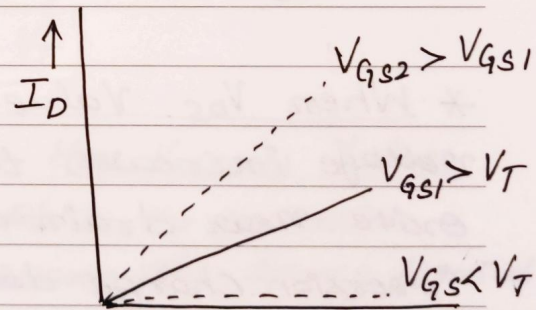 V_GS2 > V_GS1
I_D
V_GS1 > V_T
V_GS < V_T